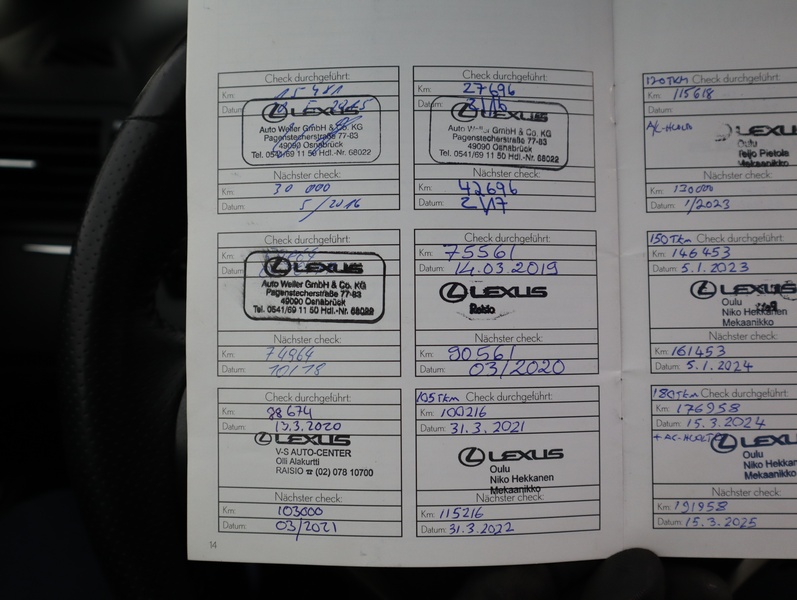 Check durchgeführt:
Km: 15 481
Datum:
LEXUS
Auto Weller GmbH & Co. KG
Pagenstecherstraße 77-83
49090 Osnabrück
Tel. 0541/69 11 50 Hdl.-Nr. 68022
Nächster check:
Km: 30 000
Datum: 5/2016
Check durchgeführt:
Km: 27696
Datum: 3/16
LEXUS
Auto Weller GmbH & Co. KG
Pagenstecherstraße 77-83
49090 Osnabrück
Tel. 0541/69 11 50 Hdl.-Nr. 68022
Nächster check:
Km: 42696
Datum: 2/17
120TKM Check durchgeführt:
Km: 115618
A/C-HUOLTO
LEXUS
Oulu
Teijo Pietola
Mekaanikko
Nächster check:
Km: 130000
Datum: 1/2023
Check durchgeführt:
LEXUS
Auto Weller GmbH & Co. KG
Pagenstecherstraße 77-83
49090 Osnabrück
Tel. 0541/69 11 50 Hdl.-Nr. 68022
Nächster check:
Km: 74964
Datum: 10/18
Check durchgeführt:
Km: 75561
Datum: 14.03.2019
LEXUS
Raisio
Nächster check:
Km: 90561
Datum: 03/2020
150Tkm Check durchgeführt:
Km: 146453
Datum: 5.1.2023
LEXUS
Oulu
Niko Hekkanen
Mekaanikko
Nächster check:
Km: 161453
Datum: 5.1.2024
Check durchgeführt:
Km: 88674
Datum: 13.3.2020
LEXUS
V-S AUTO-CENTER
Olli Alakurtti
RAISIO ☎ (02) 078 10700
Nächster check:
Km: 103000
Datum: 03/2021
105Tkm Check durchgeführt:
Km: 100216
Datum: 31.3.2021
LEXUS
Oulu
Niko Hekkanen
Mekaanikko
Nächster check:
Km: 115216
Datum: 31.3.2022
180Tkm Check durchgeführt:
Km: 176958
Datum: 15.3.2024
+ AC-HUOLTO
LEXU
Oulu
Niko Hekk
Mekaanikk
Nächster check:
Km: 191958
Datum: 15.3.2025
14